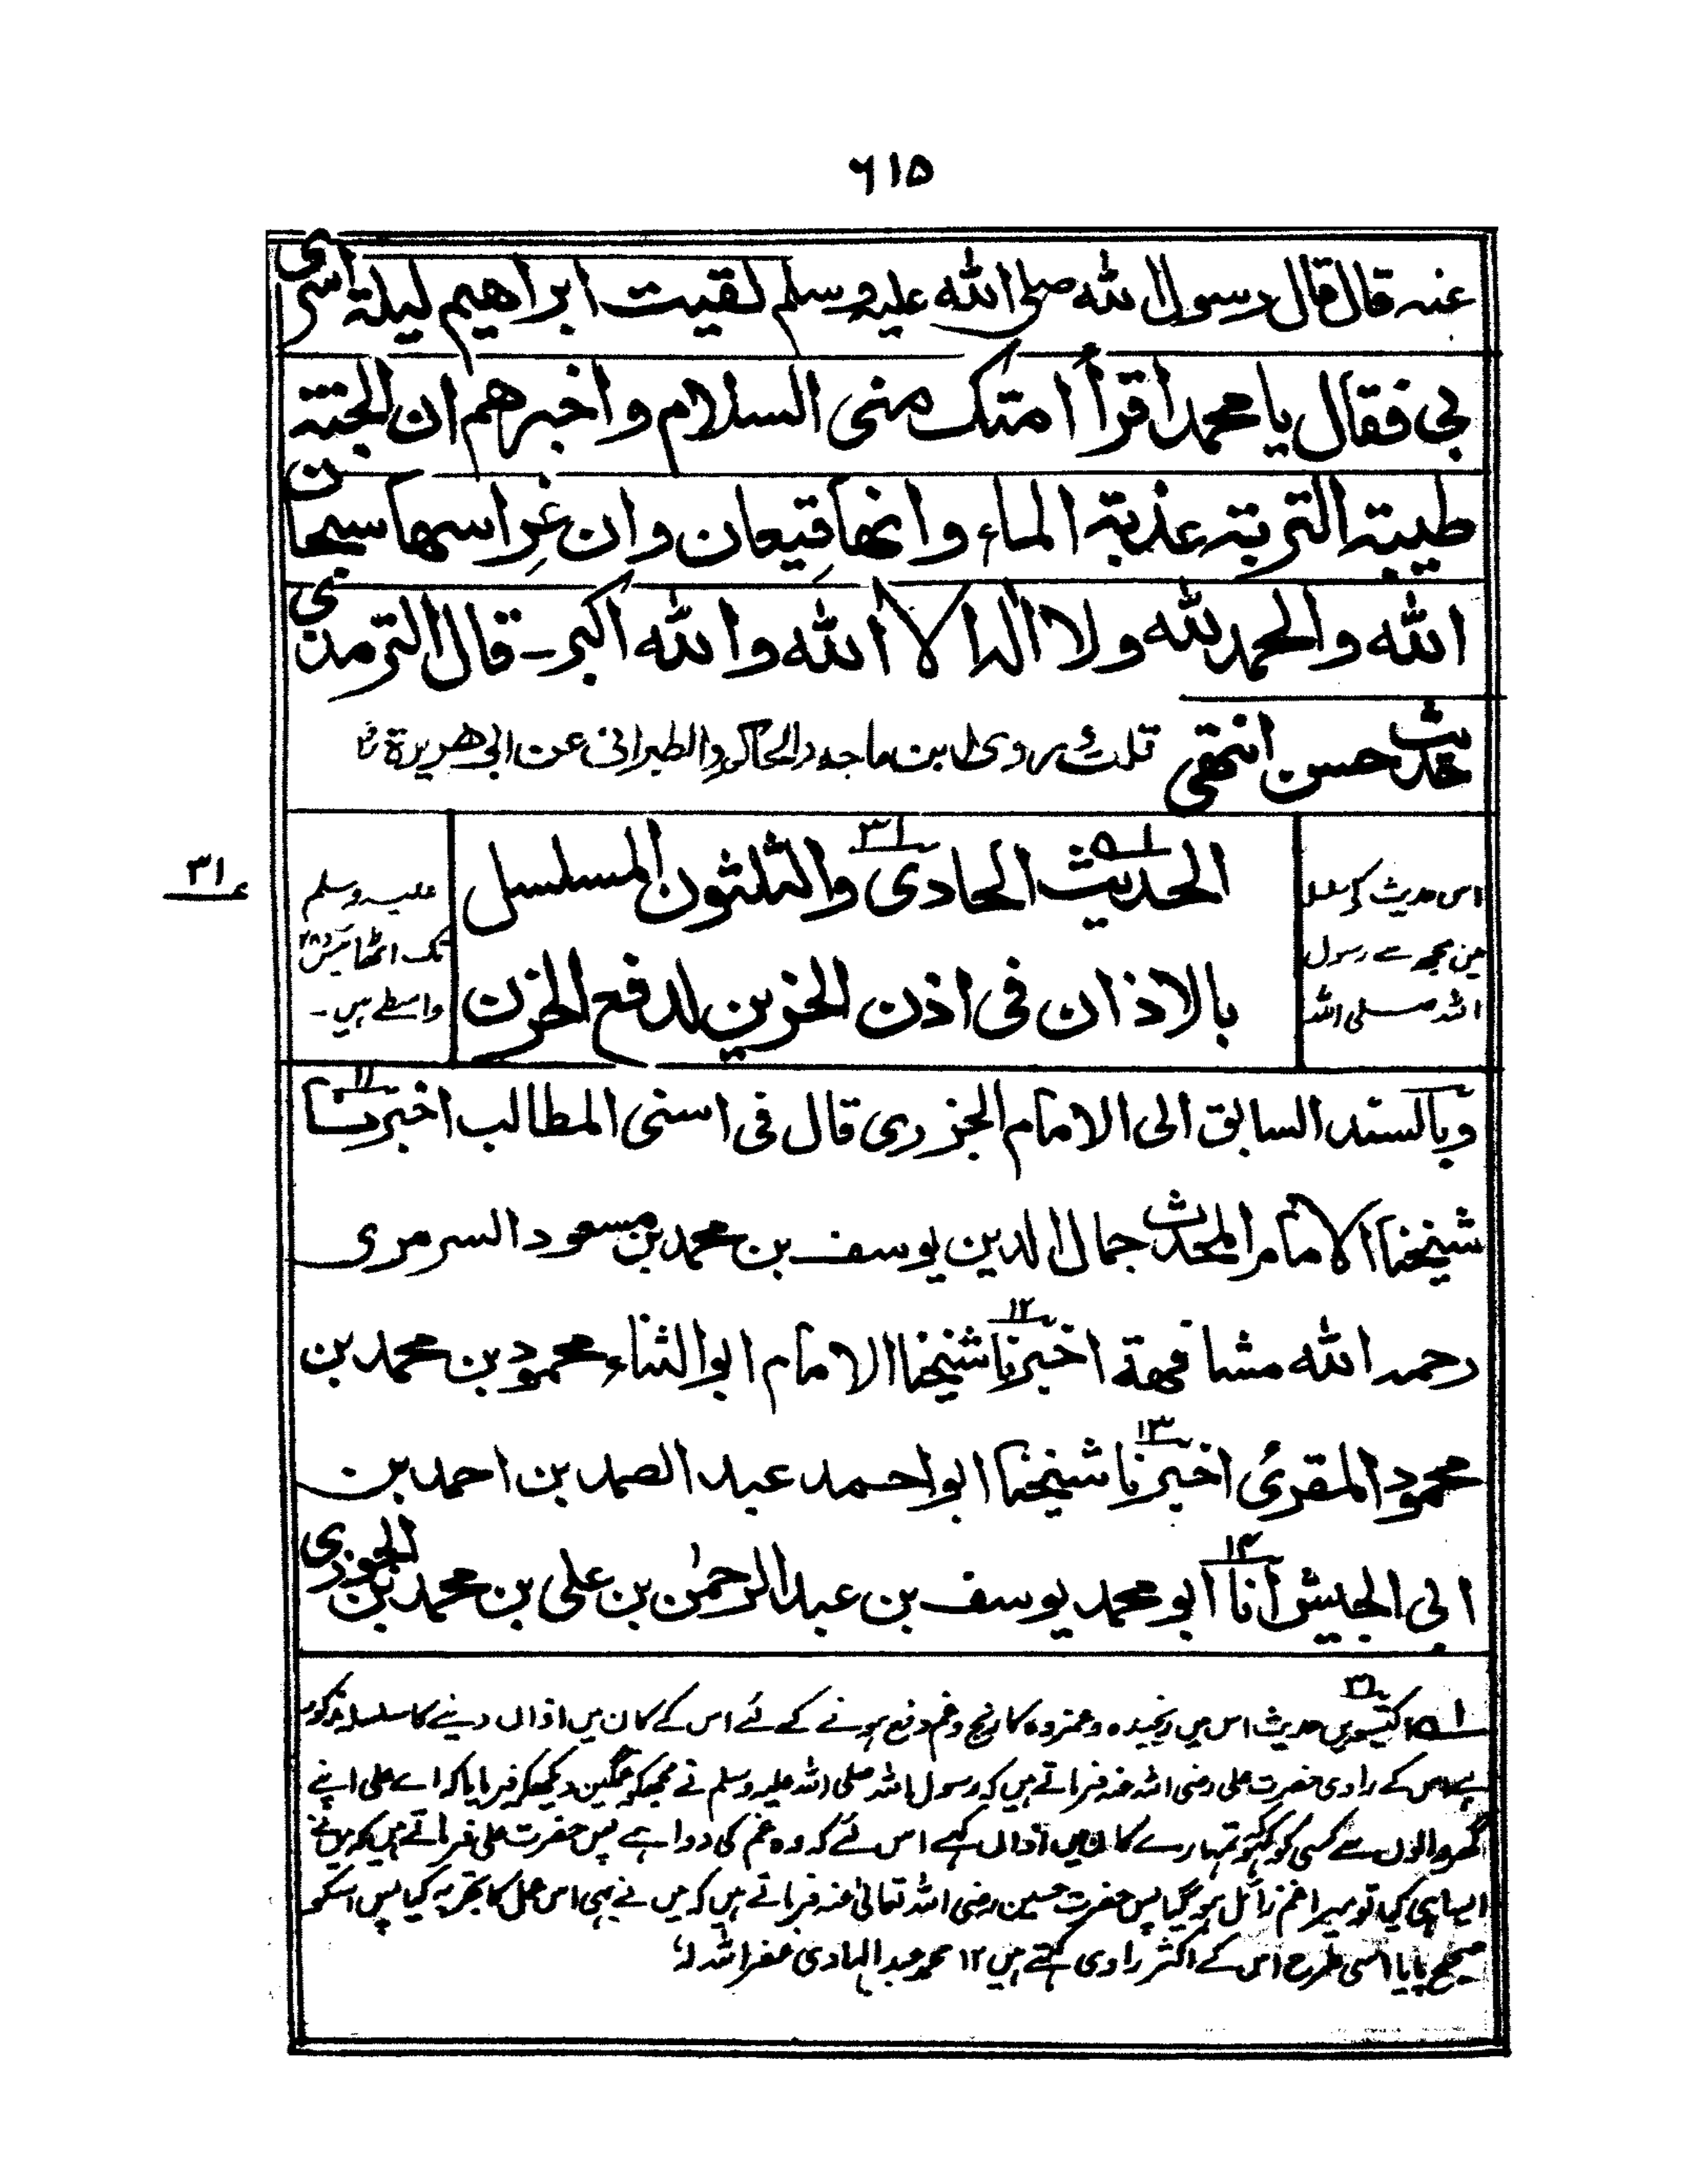 ٦١٥
عنه قال قال رسول الله صلى الله عليه وسلم لقيت ابراهيم ليلة اسرى
بي فقال يا محمد اقرأ امتك منى السلام واخبرهم ان الجنة
طيبة التربة عذبة الماء وانها قيعان وان غراسها سبحان
الله والحمد لله ولا اله الا الله والله اكبر - قال الترمذى
حديث حسن انتهى قلت وروى ابن ماجه والحاكم والطبرانى عن ابى هريرة
الحديث الحادى والثلثون المسلسل
بالاذان فى اذن الحزين لدفع الحزن
اس حدیث کے سلسلہ
میں مجھ سے رسول
اللہ صلی اللہ
علیہ وسلم
تک اٹھائیس ۲۸
واسطے ہیں۔
٣١
وبالسند السابق الى الامام الجزرى قال فى اسنى المطالب اخبرنا
شيخنا الامام المحدث جمال الدين يوسف بن محمد بن مسعود السرمرى
رحمه الله مشافهة اخبرنا شيخنا الامام ابو الثناء محمود بن محمد بن
محمود المقرئ اخبرنا شيخنا ابو احمد عبد الصمد بن احمد بن
ابى الجيش أنا ابو محمد يوسف بن عبد الرحمٰن بن على بن محمد بن الجوزى
۵۱ اکتیسویں حدیث اس میں رنجیدہ و غمزدہ کا رنج و غم دفع ہونے کے لئے اس کے کان میں اذاں دینے کا سلسلہ مذکور
ہے اس کے راوی حضرت علی رضی اللہ عنہ فرماتے ہیں کہ رسول اللہ صلی اللہ علیہ وسلم نے مجھکو غمگین دیکھکر فرمایا کہ اے علی اپنے
گھر والوں سے کسی کو کہو تمہارے کان میں اذاں کہے اس لئے کہ وہ غم کی دوا ہے پس حضرت علی فرماتے ہیں کہ میں نے
ایسا ہی کیا تو میرا غم زائل ہو گیا پس حضرت حسین رضی اللہ تعالیٰ عنہ فرماتے ہیں کہ میں نے بھی اس عمل کا تجربہ کیا پس اسکو
صحیح پایا اسی طرح اس کے اکثر راوی کہتے ہیں ۱۲ محمد عبد الہادی غفر اللہ لہ